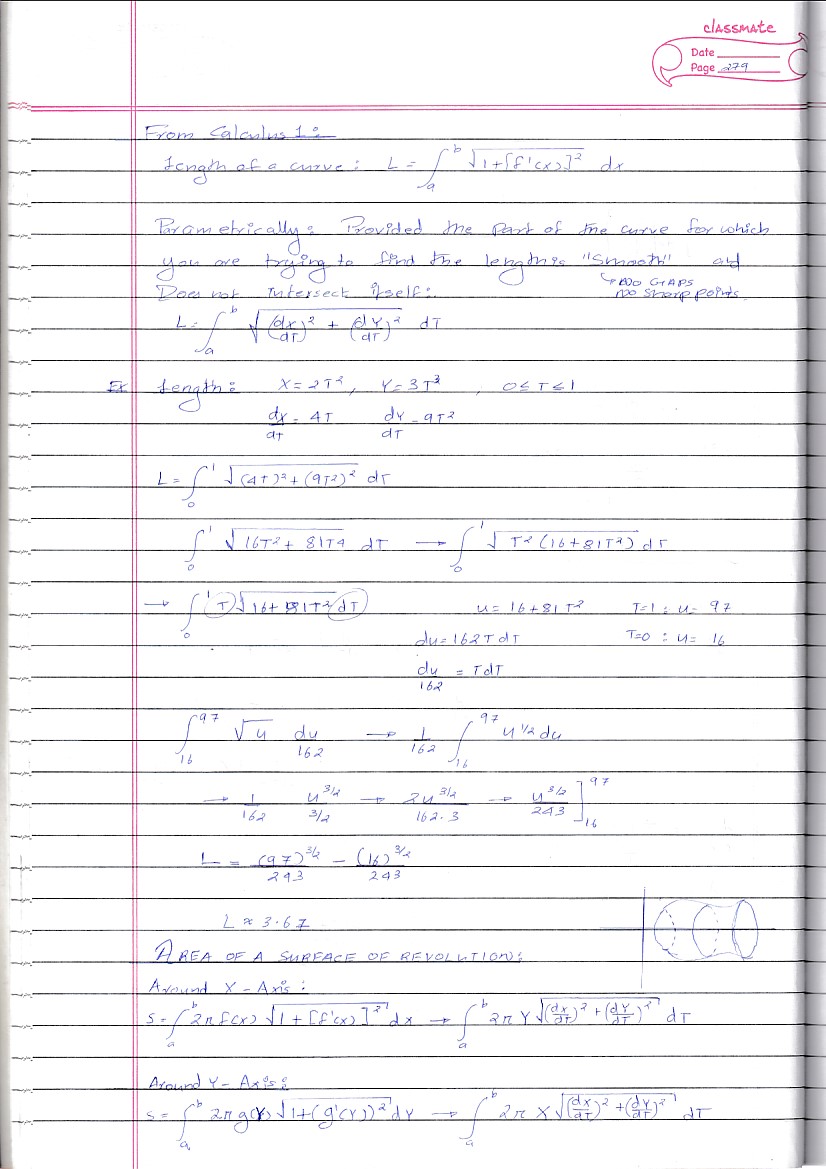 classmate
Date
Page 279
From Calculus 1:
Length of a curve: L = ∫_a^b √(1+[f'(x)]²) dx
Parametrically: Provided the part of the curve for which
you are trying to find the length is "smooth" and
↳ No GAPS
Does not intersect itself:
No sharp points.
L = ∫_a^b √((dx/dT)² + (dY/dT)²) dT
Ex Length: X = 2T², Y = 3T³, 0 ≤ T ≤ 1
dx/dT = 4T dY/dT = 9T²
L = ∫_0^1 √((4T)² + (9T²)²) dT
∫_0^1 √(16T² + 81T4) dT → ∫_0^1 √(T²(16+81T²)) dT
→ ∫_0^1 T √(16+81T²) dT u = 16+81T² T=1 : u = 97
du = 162T dT T=0 : u = 16
du/162 = T dT
∫_16^97 √u du/162 → 1/162 ∫_16^97 u^1/2 du
→ 1/162 u^3/2 / 3/2 → 2u^3/2 / 162·3 → u^3/2 / 243 ]_16^97
L = (97)^3/2 / 243 − (16)^3/2 / 243
L ≈ 3.67
AREA OF A SURFACE OF REVOLUTION:
Around X-Axis:
S = ∫_a^b 2π f(x) √(1+[f'(x)]²) dx → ∫_a^b 2π Y √((dx/dT)² + (dY/dT)²) dT
Around Y-Axis:
S = ∫_a^b 2π g(Y) √(1+(g'(Y))²) dY → ∫_a^b 2π X √((dx/dT)² + (dY/dT)²) dT